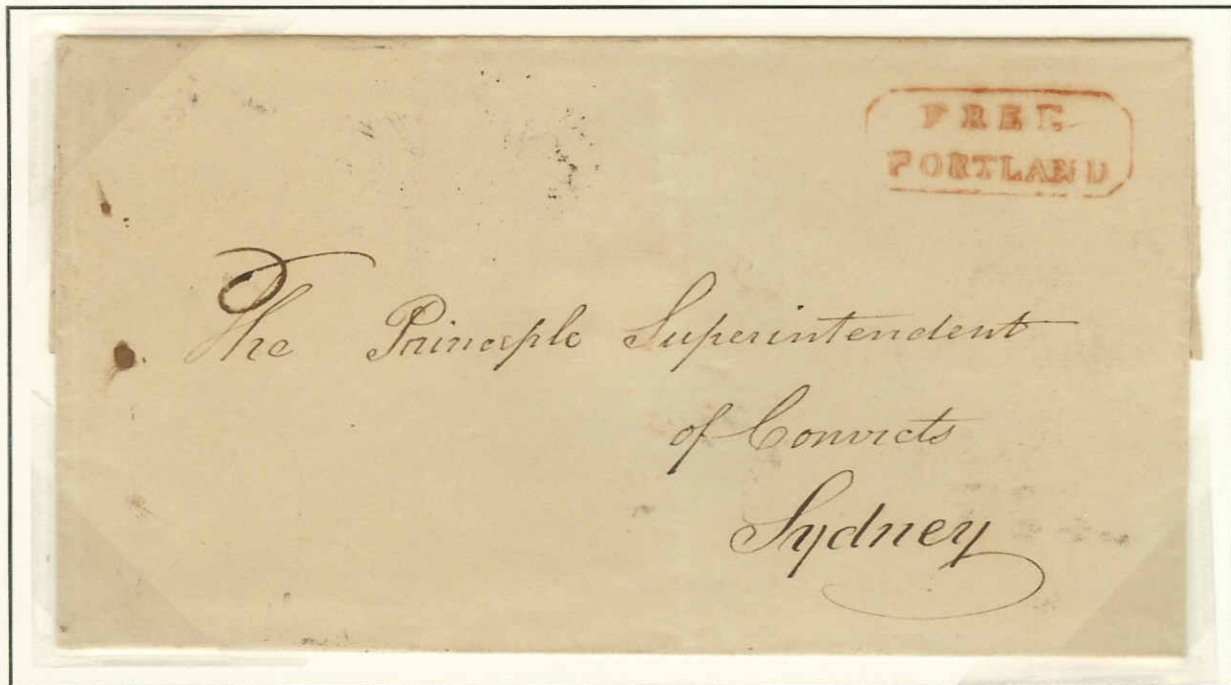 FREE
PORTLAND
The Principle Superintendent
of Convicts
Sydney